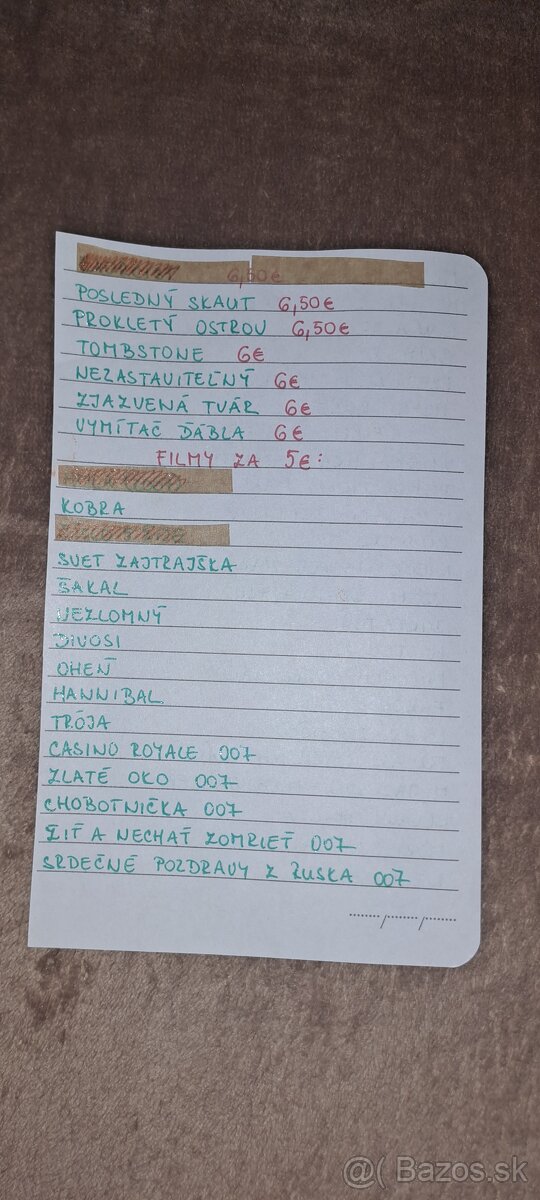 6,50€
POSLEDNÝ SKAUT 6,50€
PROKLETÝ OSTROV 6,50€
TOMBSTONE 6€
NEZASTAVITEĽNÝ 6€
ZJAZVENÁ TVÁR 6€
VYMÍTAČ ĎÁBLA 6€
FILMY ZA 5€:
KOBRA
SVET ZAJTRAJŠKA
ŠAKAL
NEZLOMNÝ
DIVOSI
OHEŇ
HANNIBAL
TRÓJA
CASINO ROYALE 007
ZLATÉ OKO 007
CHOBOTNIČKA 007
ŽIŤ A NECHAŤ ZOMRIEŤ 007
SRDEČNÉ POZDRAVY Z RUSKA 007
......../......../........
@( Bazos.sk